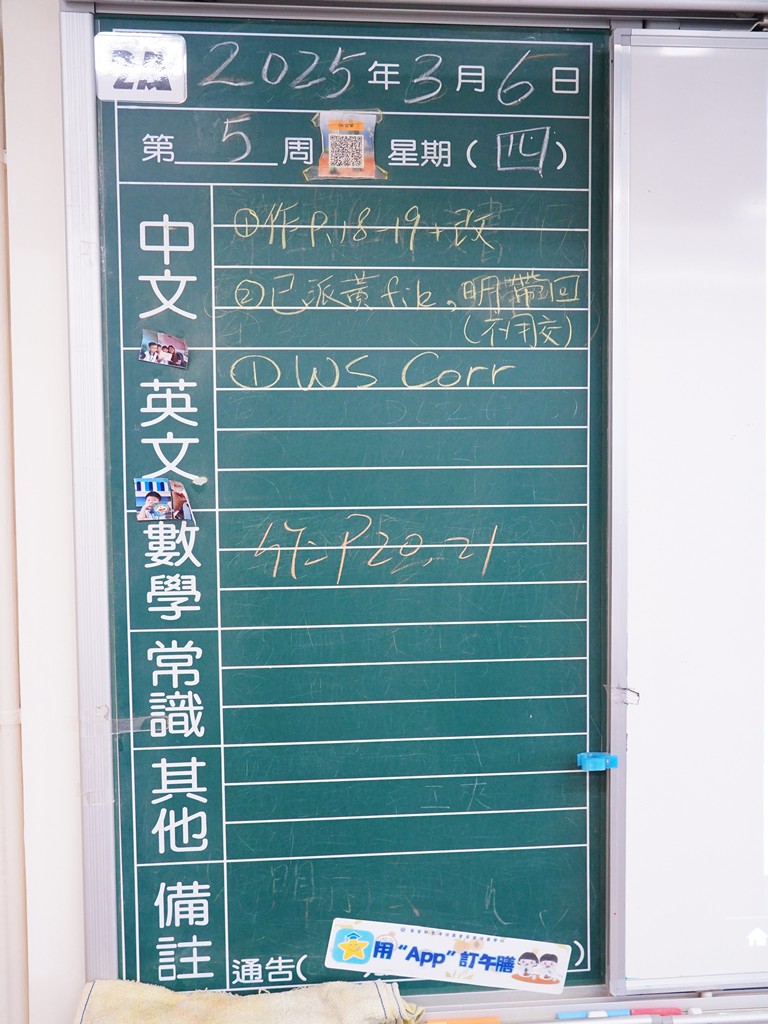 2A
2025年3月6日
第5周 星期(四)
中文
①作P.18-19+改
②已派黃file，明帶回
(不用交)
英文
①WS Corr
數學
作二P20,21
常識
其他
備註
通告(
用“App”訂午膳
)